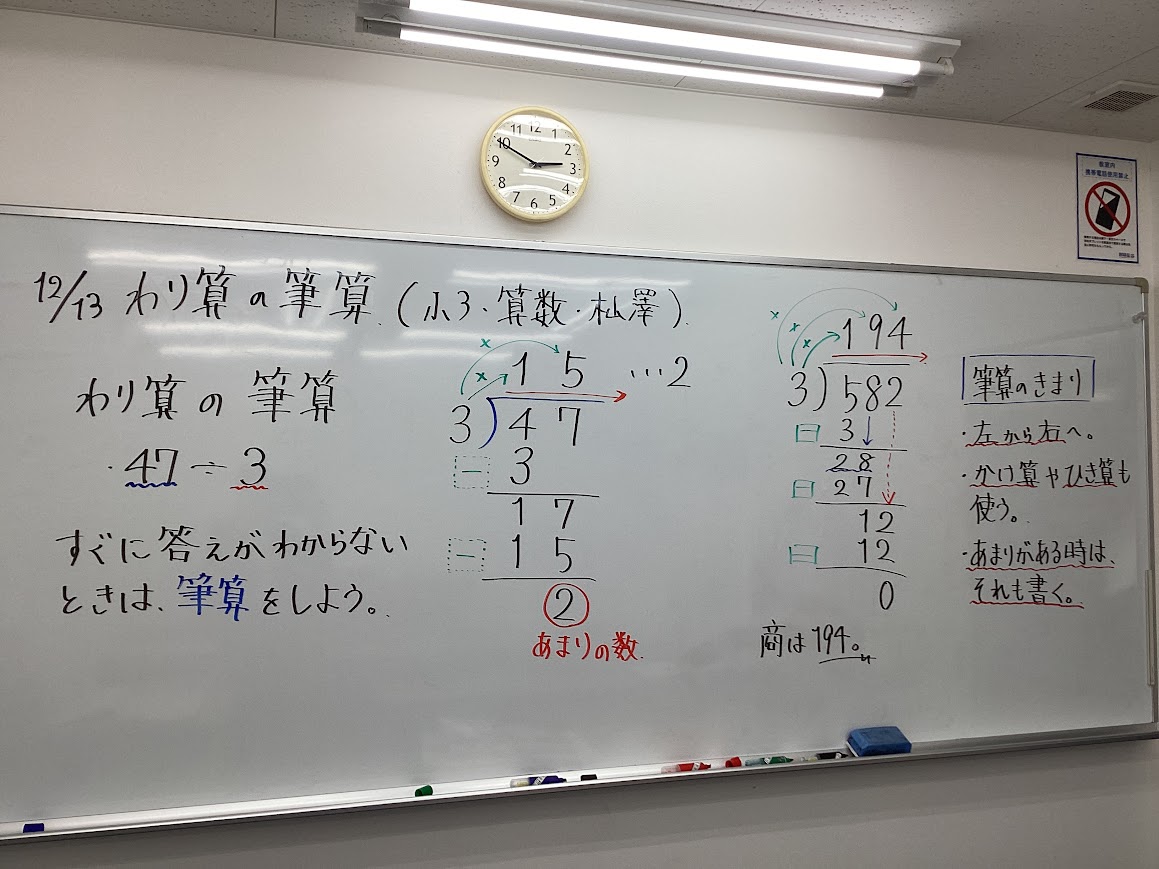 12/13 わり算の筆算 (小3・算数・杣澤)
わり算の筆算
・47÷3
すぐに答えがわからない
ときは、筆算をしよう。
× ×
15 …2
3)47
－3
17
－15
2
あまりの数
× × ×
194
3)582
－3
28
－27
12
－12
0
商は194。
筆算のきまり
・左から右へ。
・かけ算やひき算も
使う。
・あまりがある時は、
それも書く。
12 1 2 3 4 5 6 7 8 9 10 11
教室内
携帯電話使用禁止